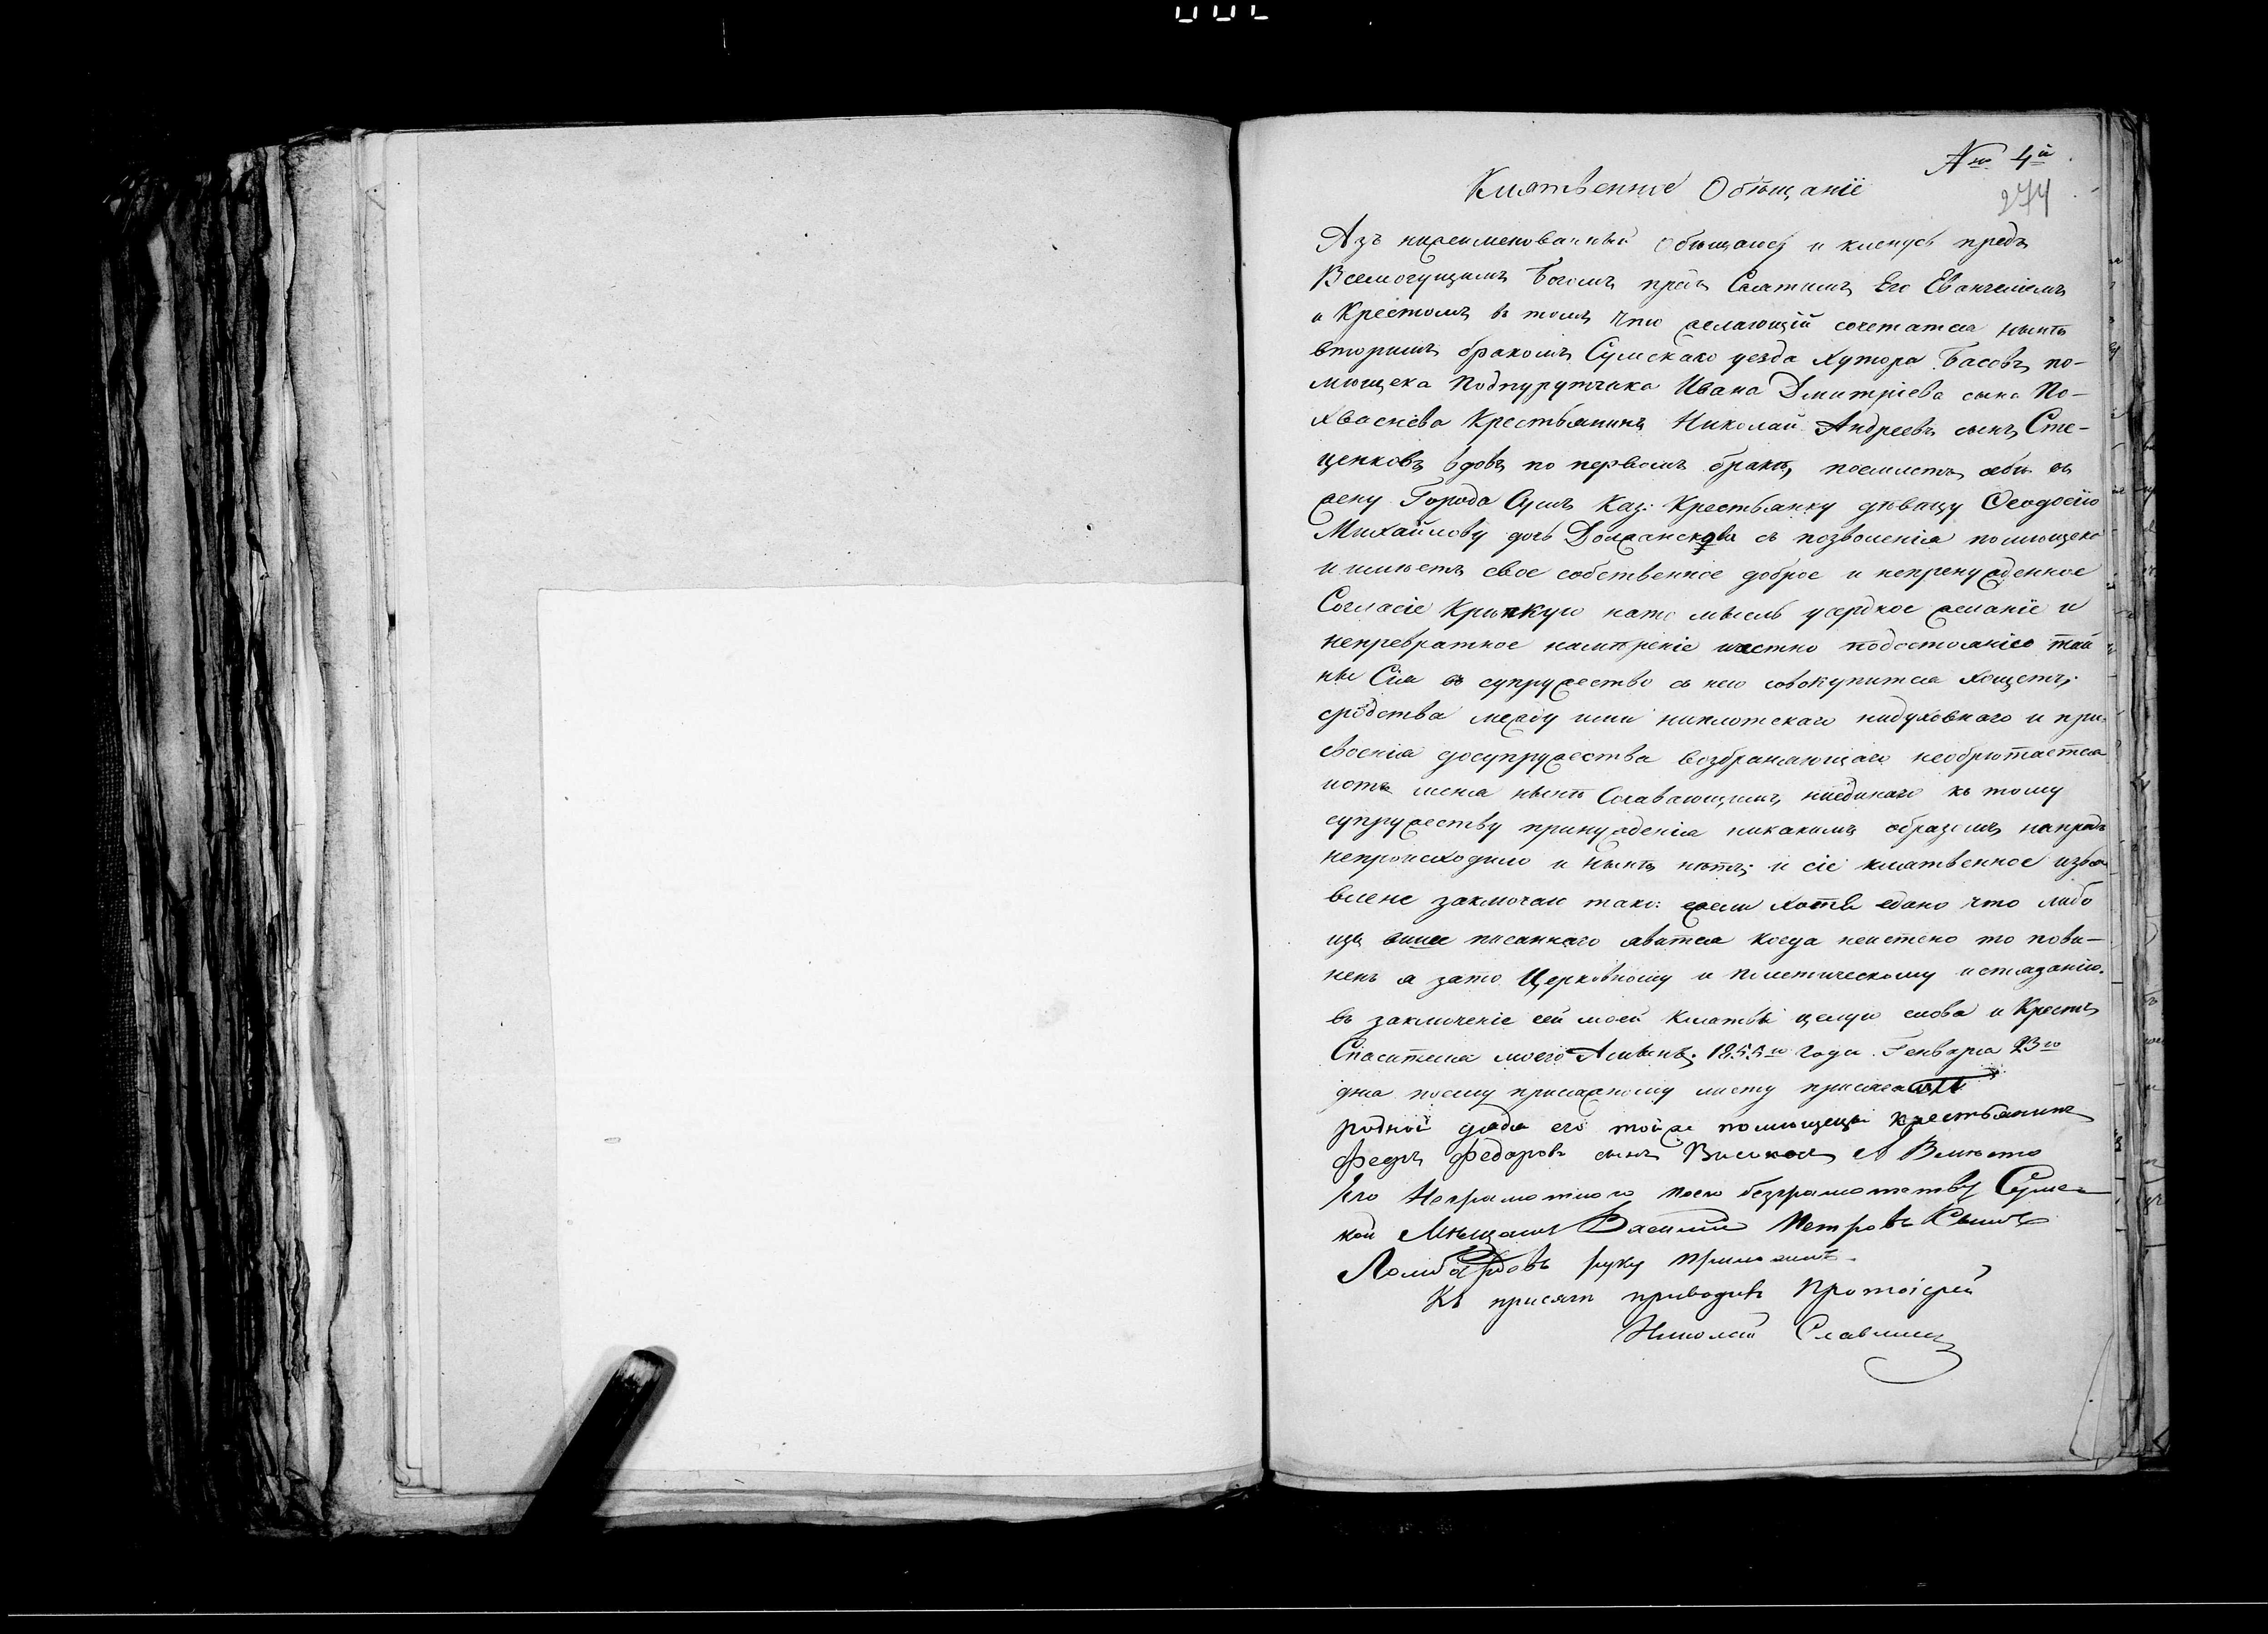 № 4й
274
Клятвенное Обѣщаніе
Азъ нижеименованный обѣщаюсь и кленусь предъ
Всемогущимъ Богомъ предъ Святымъ Его Евангеліемъ
и Крестомъ въ томъ что желающій сочетатся нынѣ
вторымъ бракомъ Сумскаго уезда Хутора Басовъ по-
мѣщека Подпурутчика Ивана Дмитріева сына По-
хваснева Крестьянинъ Николай Андреевъ сынъ Сте-
ценковъ вдовъ по первомъ бракѣ, поемлетъ себѣ въ
жену Города Сумъ Каз: Крестьянку дѣвицу Феодосію
Михайлову дочь Должанскова съ позволенія помѣщека
и имѣетъ свое собственное доброе и непренужденное
Согласіе Крѣпкую нато мысль усердное желаніе и
непревратное намѣреніе честно подостоянію тай
ны Сія въ супружество съ нею совокупится хощетъ,
сродства между ими ниплотскаго нидуховнаго и при-
своенія досупружества возбраняющаго необрютается
иотъ мене нынѣ ниединаго къ тому
супружеству принужденія никакимъ образомъ напредь
непроисходило и нынѣ нѣтъ; и сіе клятвенное изъя-
влене заключаю тако: ежели хотя едано что либо
изъ выше писаннаго явится когда неистено то пови-
ненъ я зато Церковному и политическому истязанію.
въ заключеніе сей моей Клятвы целую слова и Крестъ
Спасителя моего Аминь. 1855го года Генваря 23го
дня посему присяжному листу присягалъ
родной дядя его тойже помѣщецы крестьянинъ
Федръ Федоровъ сынъ А Вмѣсто
Его Неграмотного поево безграмотству Сумс-
кой Мѣщанин Василий Петровъ Сынъ
Ломбардовъ руку приложилъ
Къ присяги приводилъ Протоіерей
Николай